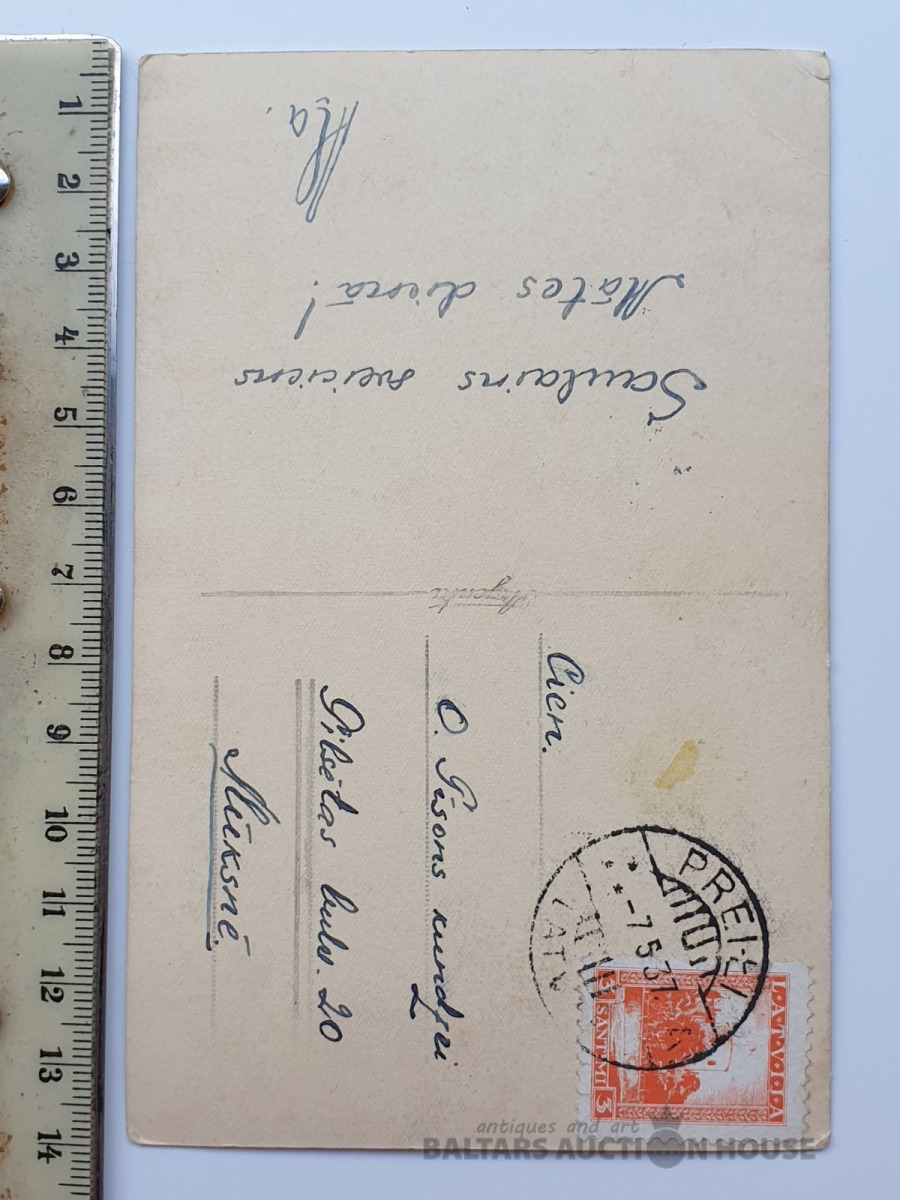 Saulains sveiciens
Mātes dienā!
Cien.
O. Pīsons kundzei
Pilsētas bulv. 20
Alūksnē.
PREIĻI
-7 5 37
LATV
LATVIJA
3 SANTĪMI 3
1 2 3 4 5 6 7 8 9 10 11 12 13 14
antiques and art
BALTARS AUCTION HOUSE